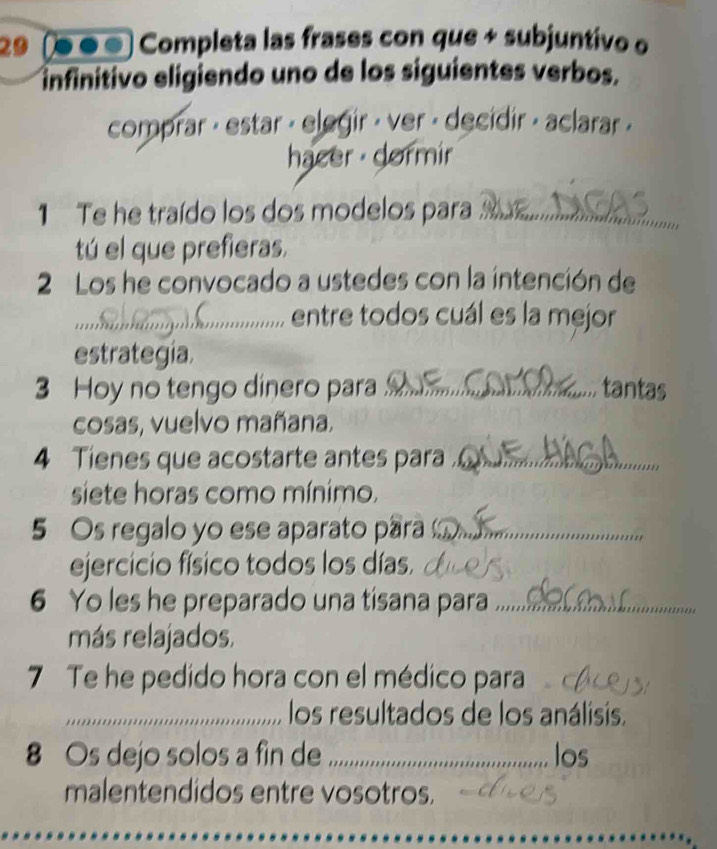 29 Completa las frases con que + subjuntivo o
infinitivo eligiendo uno de los siguientes verbos.
comprar · estar · elegir · ver · decidir · aclarar ·
hacer · dormir
1 Te he traído los dos modelos para QUE DIGAS
tú el que prefieras.
2 Los he convocado a ustedes con la intención de
elegir entre todos cuál es la mejor
estrategia.
3 Hoy no tengo dinero para QUE tantas
cosas, vuelvo mañana.
4 Tienes que acostarte antes para QUE HAGA
siete horas como mínimo.
5 Os regalo yo ese aparato para
ejercicio físico todos los días.
6 Yo les he preparado una tisana para dormir
más relajados.
7 Te he pedido hora con el médico para
los resultados de los análisis.
8 Os dejo solos a fin de los
malentendidos entre vosotros.